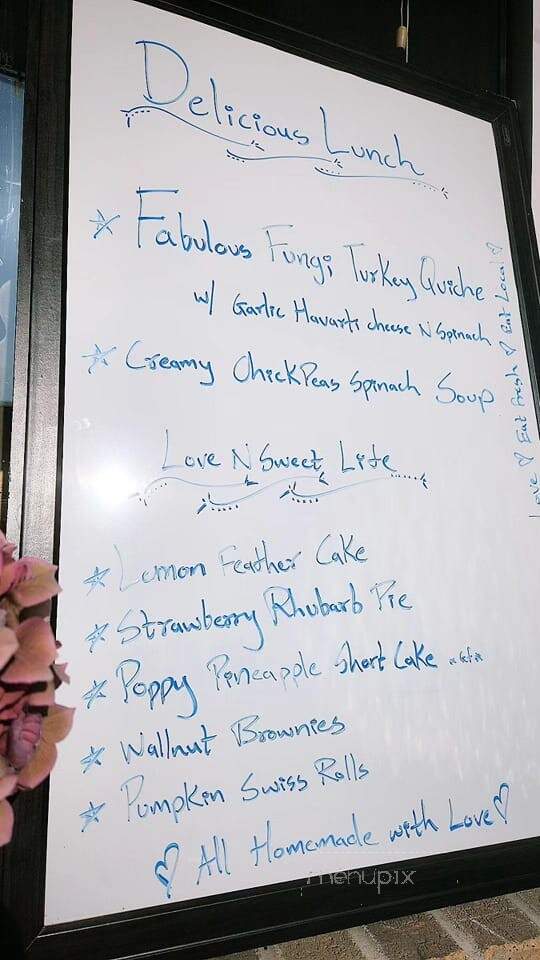 Delicious Lunch
Fabulous Fungi Turkey Quiche
w/ Garlic Havarti cheese N Spinach
Creamy ChickPeas Spinach Soup
Love N Sweet Lite
Lemon Feather Cake
Strawberry Rhubarb Pie
Poppy Pineapple Short Cake
Wallnut Brownies
Pumpkin Swiss Rolls
♡ All Homemade with Love ♡
Love ♡ Eat Fresh ♡ Eat Local ♡
menupix